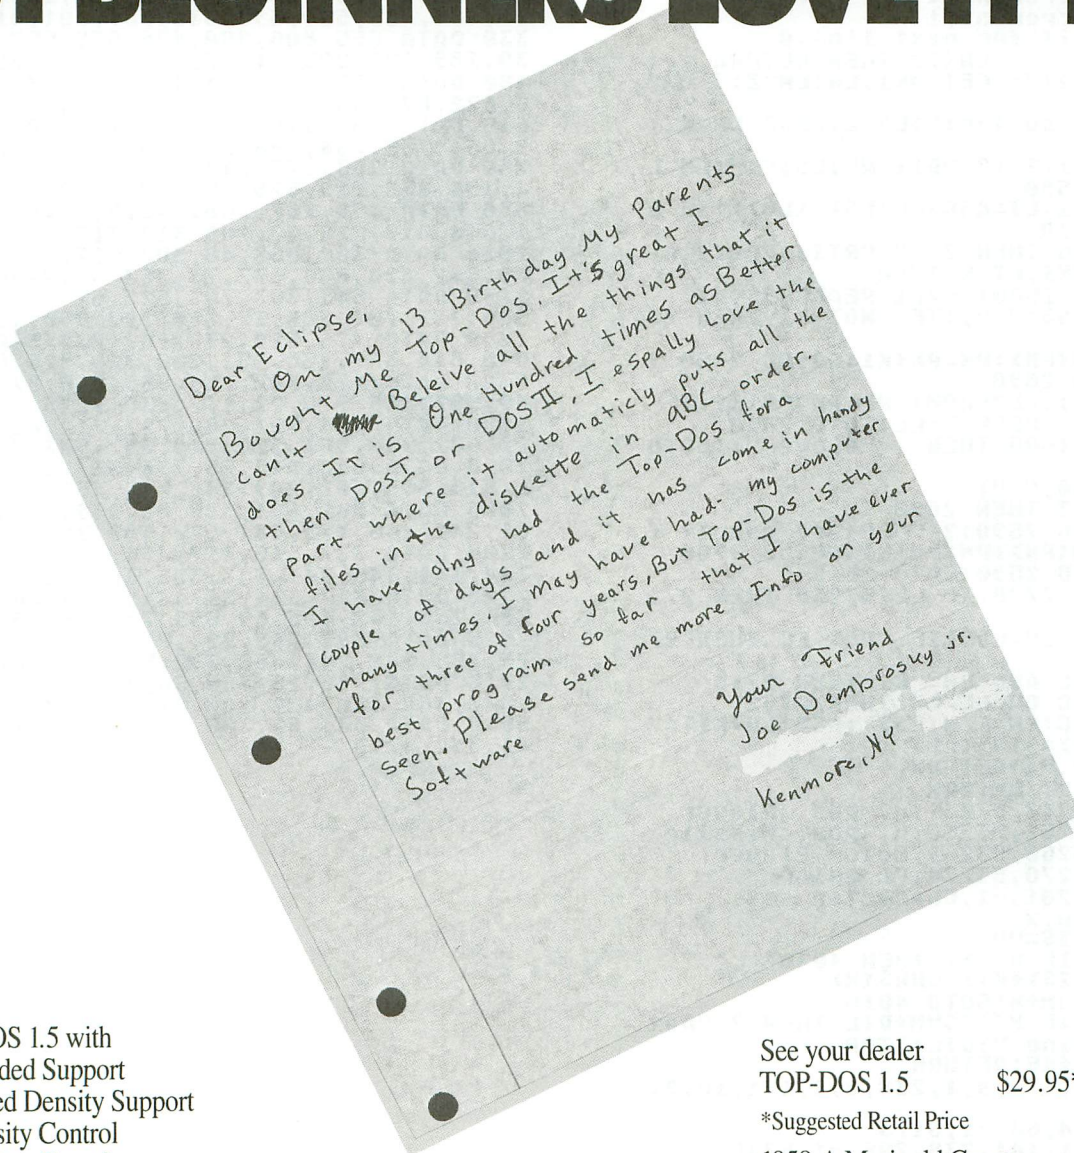 BEGINNERS LOVE IT
Dear Eclipse,
On my 13 Birthday My Parents
Bought Me Top-Dos. It's great I
can't Beleive all the things that it
does It is One Hundred times as Better
then DosI or DOSII, I espally Love the
part where it automaticly puts all the
files in the diskette in aBC order.
I have olny had the Top-Dos for a
couple of days and it has come in handy
many times. I may have had my computer
for three of four years, But Top-Dos is the
best program so far that I have ever
seen. Please send me more Info on your
Software
Your Friend
Joe Dembrosky jr.
Kenmore, NY
OS 1.5 with
ded Support
ed Density Support
sity Control
See your dealer
TOP-DOS 1.5 $29.95*
*Suggested Retail Price